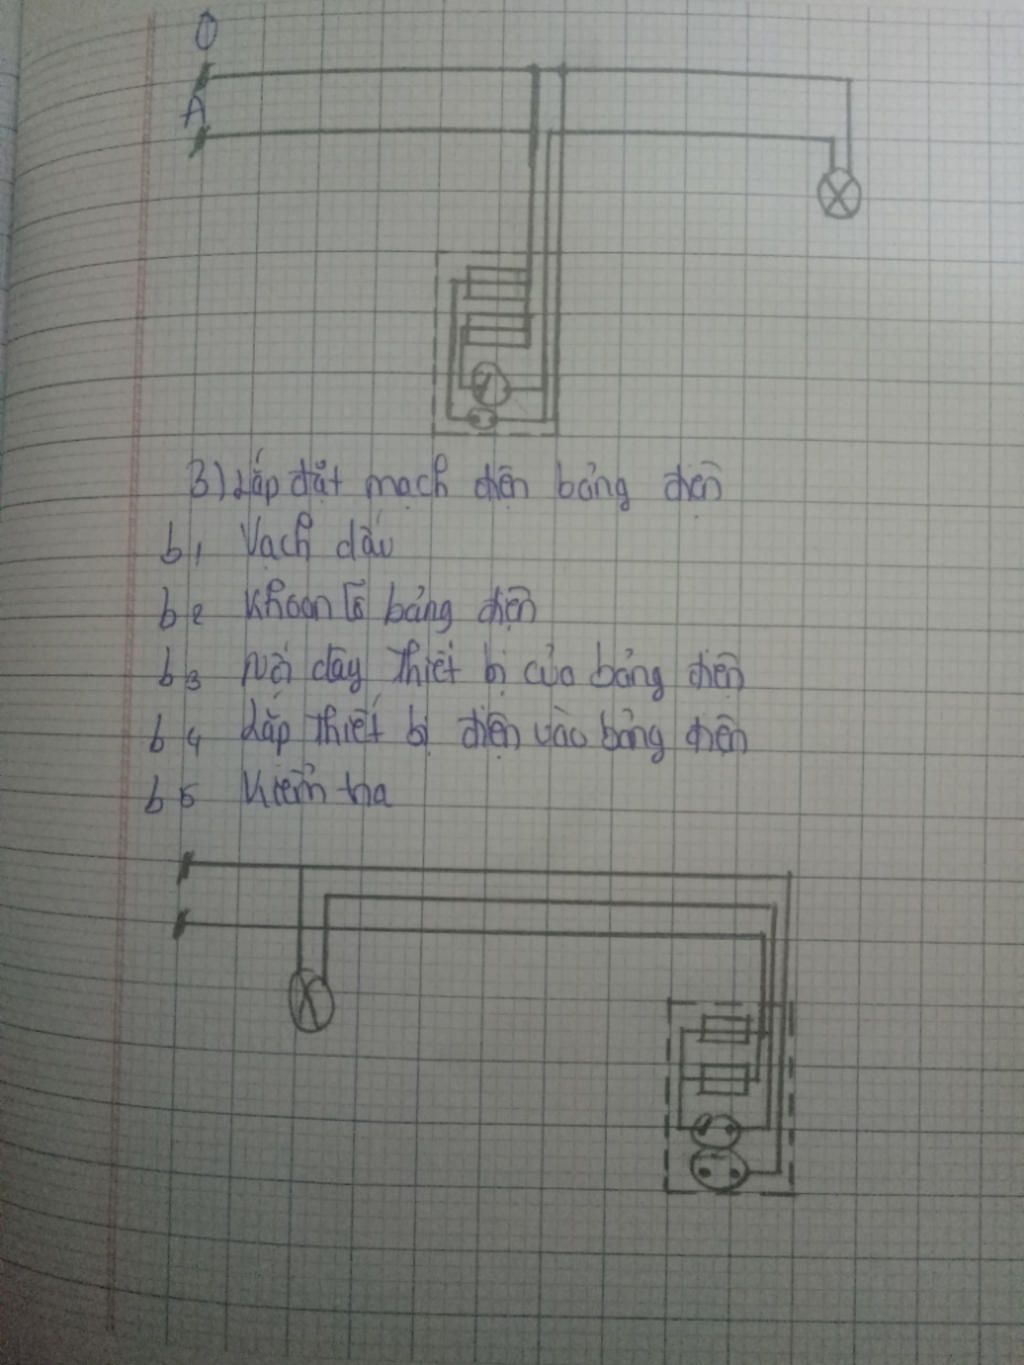 O
A
3) Lắp đặt mạch điện bảng điện
b1 Vạch dấu
b2 Khoan lỗ bảng điện
b3 nối dây thiết bị của bảng điện
b4 Lắp thiết bị điện vào bảng điện
b5 Kiểm tra